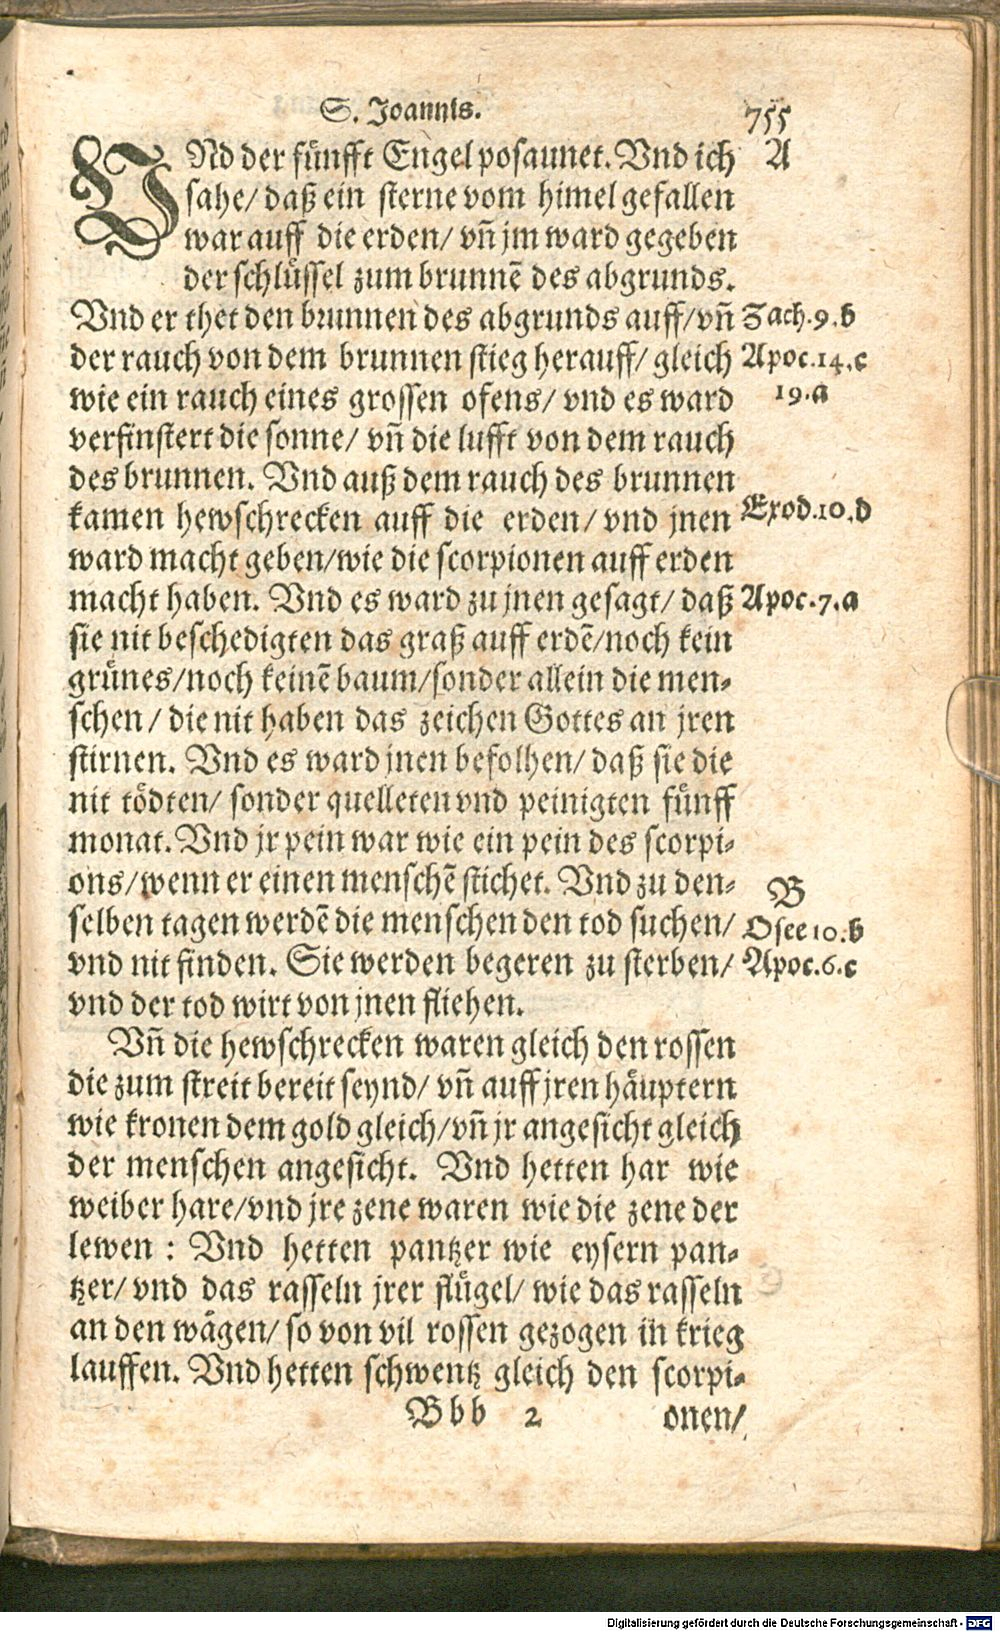 S. Joannis. 755
VNd der fünfft Engel posaunet. Vnd ich A
sahe/ daß ein sterne vom himel gefallen
war auff die erden/ vñ jm ward gegeben
der schlüssel zum brunnẽ des abgrunds.
Vnd er thet den brunnen des abgrunds auff/ vñ Zach.9.b
der rauch von dem brunnen stieg herauff/ gleich Apoc.14.c
wie ein rauch eines grossen ofens/ vnd es ward 19.a
verfinstert die sonne/ vñ die lufft von dem rauch
des brunnen. Vnd auß dem rauch des brunnen
kamen hewschrecken auff die erden/ vnd jnen Exod.10.d
ward macht geben/wie die scorpionen auff erden
macht haben. Vnd es ward zu jnen gesagt/ daß Apoc.7.a
sie nit beschedigten das graß auff erdẽ/noch kein
grünes/noch keinẽ baum/sonder allein die men-
schen/ die nit haben das zeichen Gottes an jren
stirnen. Vnd es ward jnen befolhen/ daß sie die
nit tödten/ sonder quelleten vnd peinigten fünff
monat. Vnd jr pein war wie ein pein des scorpi-
ons/wenn er einen menschẽ stichet. Vnd zu den- B
selben tagen werdẽ die menschen den tod suchen/ Osee 10.b
vnd nit finden. Sie werden begeren zu sterben/ Apoc.6.c
vnd der tod wirt von jnen fliehen.
Vñ die hewschrecken waren gleich den rossen
die zum streit bereit seynd/ vñ auff jren häuptern
wie kronen dem gold gleich/vñ jr angesicht gleich
der menschen angesicht. Vnd hetten har wie
weiber hare/vnd jre zene waren wie die zene der
lewen : Vnd hetten pantzer wie eysern pan-
tzer/ vnd das rasseln jrer flügel/ wie das rasseln
an den wägen/ so von vil rossen gezogen in krieg
lauffen. Vnd hetten schwentz gleich den scorpi-
Bbb 2 onen/
Digitalisierung gefördert durch die Deutsche Forschungsgemeinschaft - DFG